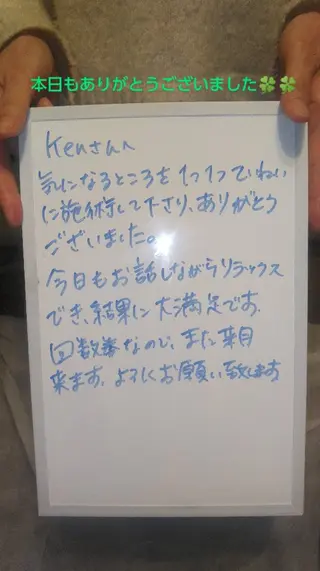 本日もありがとうございました🍀🍀
Kenさんへ
気になるところを1つ1つていねい
に施術して下さり、ありがとう
ございました。
今日もお話しながらリラックス
でき、結果に大満足です。
回数券なので、また来月
来ます。よろしくお願い致します